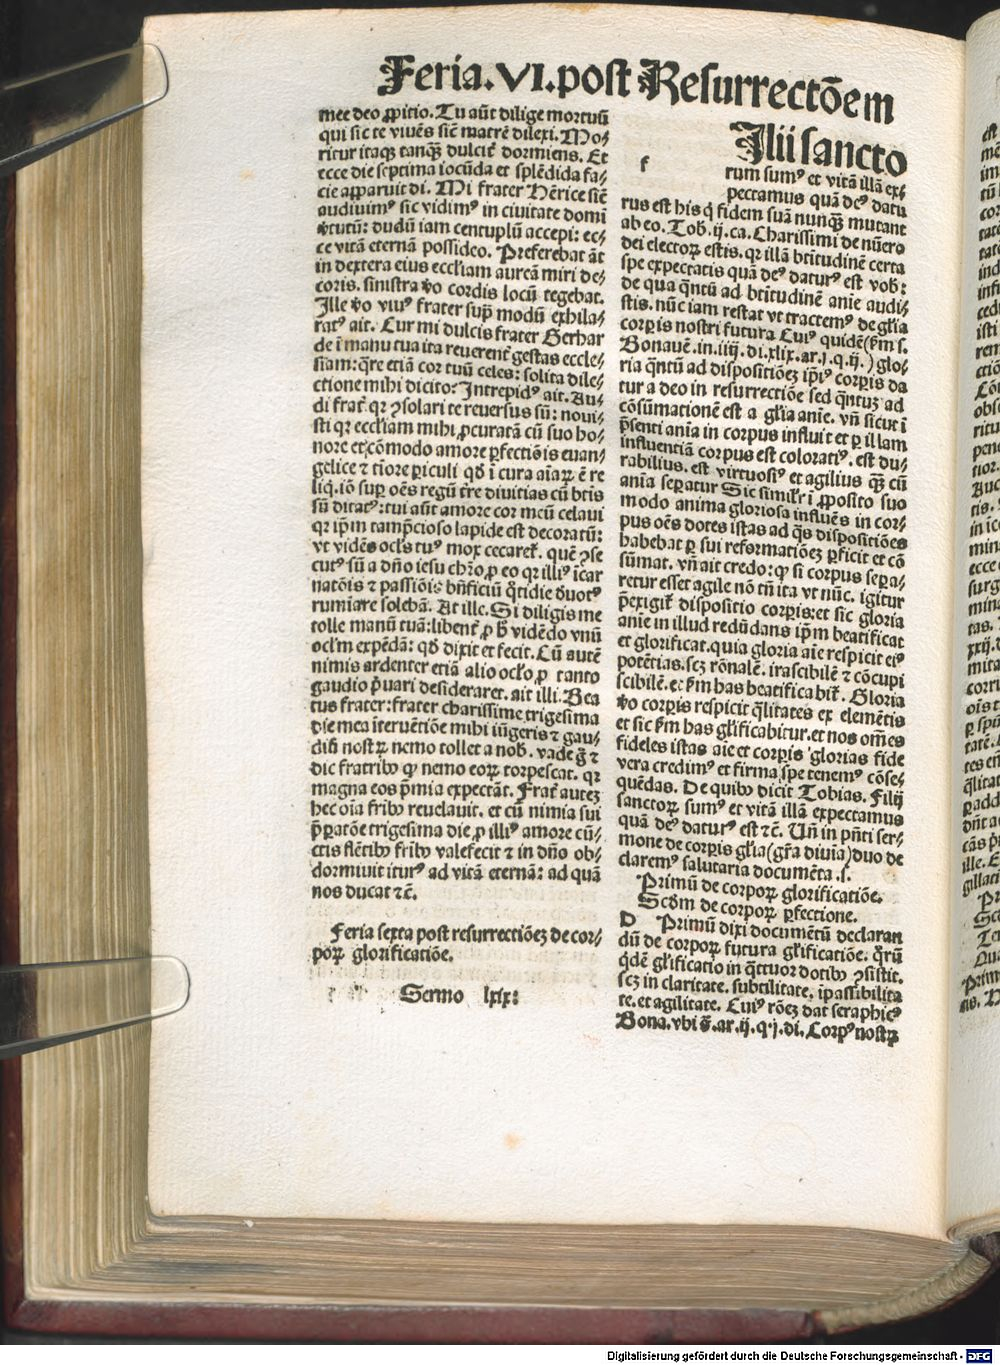 Feria.VI.post Resurrectōem
mee deo ꝓpitio. Tu aūt dilige mortuū
qui sic te viuēs sicē matrē dilexi. Mo⸗
ritur itaqꝫ tanqꝫ̄ dulcit̄ dormiens. Et
ecce die septima iocūda et splēdida fa⸗
cie apparuit di. Mi frater Hērice sicē
audiuimꝰ sic vidimꝰ in ciuitate domi
v̄tutū: dudū iam centuplū accepi: ec⸗
ce vitā eternā possideo. Preferebat āt
in dextera eius eccl'iam aureā miri de⸗
coris. sinistra v̄o cordis locū tegebat.
Ille v̄o viuꝰ frater sup̄ modū exhila⸗
ratꝰ ait. Cur mi dulcis frater Gerhar
de ī manu tua ita reuerent̄ gestas eccle⸗
siam: qr̄e etiā cor tuū celes: solita dile⸗
ctione mihi dicito: Intrepidꝰ ait. Au⸗
di frat̄ qr ꝯsolari te reuersus sū: noui⸗
sti qr eccl'iam mihi ꝓcuratā cū suo ho⸗
nore et cōmodo amore ꝑfectōis euan⸗
gelice ⁊ tīore ꝑiculi qd̄ ī cura aīaꝝ ē re
liq̄. iō sup̄ oēs regū tr̄e diuitias cū btīs
sū ditatꝰ: tui aūt amore cor meū celaui
qr ip̄m tamp̄cioso lapide est decoratū:
vt vidēs ocl'os tuꝰ mox cecaret̄. quē ꝯse
cutꝰ sū a dn̄o iesu chr̄o, ꝓ eo qr illiꝰ īcar
natōis ⁊ passiōis bn̄ficiū q̄tidie d̄uotꝰ
rumīare solebā. At ille. Si diligis me
tolle manū tuā: libent̄ ꝓ h̄ vidēdo vnū
ocl'm expēdā: qd̄ dixit et fecit. Cū autē
nimis ardenter etiā alio ocl'o ꝓ tanto
gaudio p̄uari desideraret. ait illi. Bea
tus frater: frater charissime trigesima
die mea īteruētiōe mihi iūgeris ⁊ gau⸗
diū nostꝝ nemo tollet a nob. vade ḡ ⁊
dic fratribꝰ qꝫ nemo eoꝝ torpescat. qr
magna eos p̄mia expectāt. Frat̄ autēz
hec oīa fribꝰ reuelauit. et cū nimia sui
p̄patōe trigesima die ꝓ illiꝰ amore cū⸗
ctis flētibꝰ fribꝰ valefecit ⁊ in dn̄o ob⸗
dormiuit iturꝰ ad vitā eternā: ad quā
nos ducat ⁊c̄.
Feria sexta post resurrectiōeꝫ de cor⸗
poꝝ glorificatiōe.
Sermo lxix:
f
Ilii sancto
rum sumꝰ et vitā illā ex⸗
pectamus quā deꝰ datu
rus est his q̄ fidem suā nunqꝫ̄ mutant
ab eo. Tob. ij. ca. Charissimi de nūero
dei electoꝝ estis. qr illā btītudinē certa
spe expectatis quā deꝰ daturꝰ est vob:
de qua q̄ntū ad btītudinē anie audi⸗
stis. nūc iam restat vt tractemꝰ de gl'ia
corꝑis nostri futura Cuiꝰ quidē (ẜm s.
Bonauē. in. iiij. di. xlix. ar. j. q. ij.) glo⸗
ria q̄ntū ad dispositiōeꝫ ip̄iꝰ corꝑis da
tur a deo in resurrectiōe sed q̄ntuꝫ ad
cōsūmationē est a gl'ia anie. vn̄ sicut ī
p̄senti anīa in corpus influit et ꝑ illam
influentiā corpus est coloratiꝰ. est du⸗
rabilius. est virtuosiꝰ et agilius qꝫ̄ cū
anīa seꝑatur Sic simil'r ī ꝓposito suo
modo anima gloriosa influēs in cor⸗
pus oēs dotes istas ad q̄s dispositiōes
habebat ꝑ sui reformatiōeꝫ ꝑficit et cō
sūmat. vn̄ ait credo: qꝫ si corpus seꝑa⸗
retur esset agile nō tn̄ ita vt nūc. igitur
p̄exigit̄ dispositio corꝑis: et sic gloria
anie in illud redūdans ip̄m beatificat
et glorificat. quia gloria aīe respicit eiꝰ
potētias. scꝫ rōnalē. irascibilē ⁊ cōcupi
scibilē. et ẜm has beatificabit̄. Gloria
v̄o corꝑis respicit q̄litates ex elemētis
et sic ẜm has gl'ificabitur. et nos om̄es
fideles istas aīe et corꝑis glorias fide
vera credimꝰ et firma spe tenemꝰ cōse⸗
quēdas. De quibꝰ dicit Tobias. Filij
sanctoꝝ sumꝰ et vitā illā expectamus
quā deꝰ daturꝰ est ⁊c̄. Un̄ in pn̄ti ser⸗
mone de corꝑis gl'ia (gr̄a diuīa) duo de
claremꝰ salutaria documēta. s.
Primū de corpoꝝ glorificatiōe.
Scd̄m de corpoꝝ ꝑfectione.
D Primū dixi documētū declaran
dū de corpoꝝ futura gl'ificatiōe. q̄rū
q̄dē gl'ificatio in q̄ttuor dotibꝰ ꝯsistit.
scꝫ in claritate. subtilitate. īpassibilita
te. et agilitate. Cuiꝰ rōeꝫ dat seraphicꝰ
Bona. vbi s̄. ar. ij. q. j. di. Corpꝰ nostꝝ